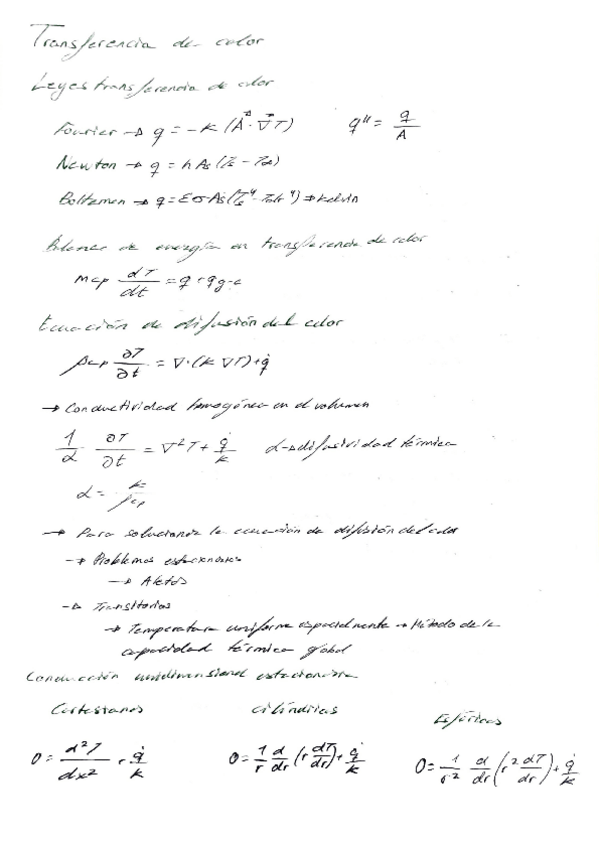 Transferencia de calor
Leyes transferencia de calor
Fourier → q = -k (A⃗ · ∇⃗T)    q" = q/A
Newton → q = h As (Ts - T∞)
Boltzman → q = εσAs (Ts⁴ - Talr⁴) ⇒ Kelvin
Balance de energía en transferencia de calor
m cp dT/dt = q + qg-c
Ecuación de difusión del calor
ρcp ∂T/∂t = ∇·(k ∇T) + q̇
→ Conductividad homogénea en el volumen
1/α ∂T/∂t = ∇²T + q̇/k    α → difusividad térmica
α = k/ρcp
→ Para solucionar la ecuación de difusión del calor
→ Problemas estacionarios
→ Aletas
→ Transitorios
→ Temperatura uniforme espacialmente → Método de la
capacidad térmica global
Conducción unidimensional estacionaria
Cartesianas    Cilíndricas    Esféricas
0 = d²T/dx² + q̇/k    0 = 1/r d/dr (r dT/dr) + q̇/k    0 = 1/r² d/dr (r² dT/dr) + q̇/k